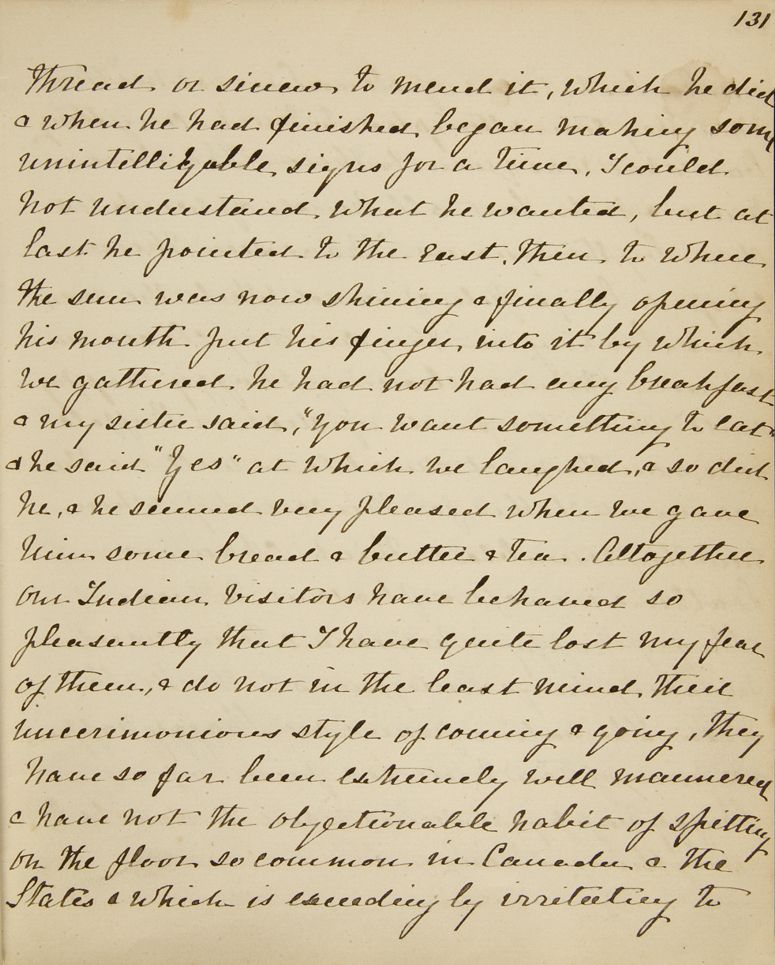 131
thread or sinew to mend it, which he did
& when he had finished, began making some
unintelligable signs for a time, I could
not understand what he wanted, but at
last he pointed to the East, then to where
the sun was now shining & finally opening
his mouth put his finger into it by which
we gathered he had not had any breakfast
& my sister said, "You want something to eat"
& he said "Yes" at which we laughed, & so did
he, & he seemed very pleased when we gave
him some bread & butter & tea. Altogether
our Indian visitors have behaved so
pleasantly that I have quite lost my fear
of them, & do not in the least mind their
uncerimonious style of coming & going, they
have so far been extremely well mannered
& have not the objectionable habit of spitting
on the floor so common in Canada & the
States & which is exceedingly irritating to